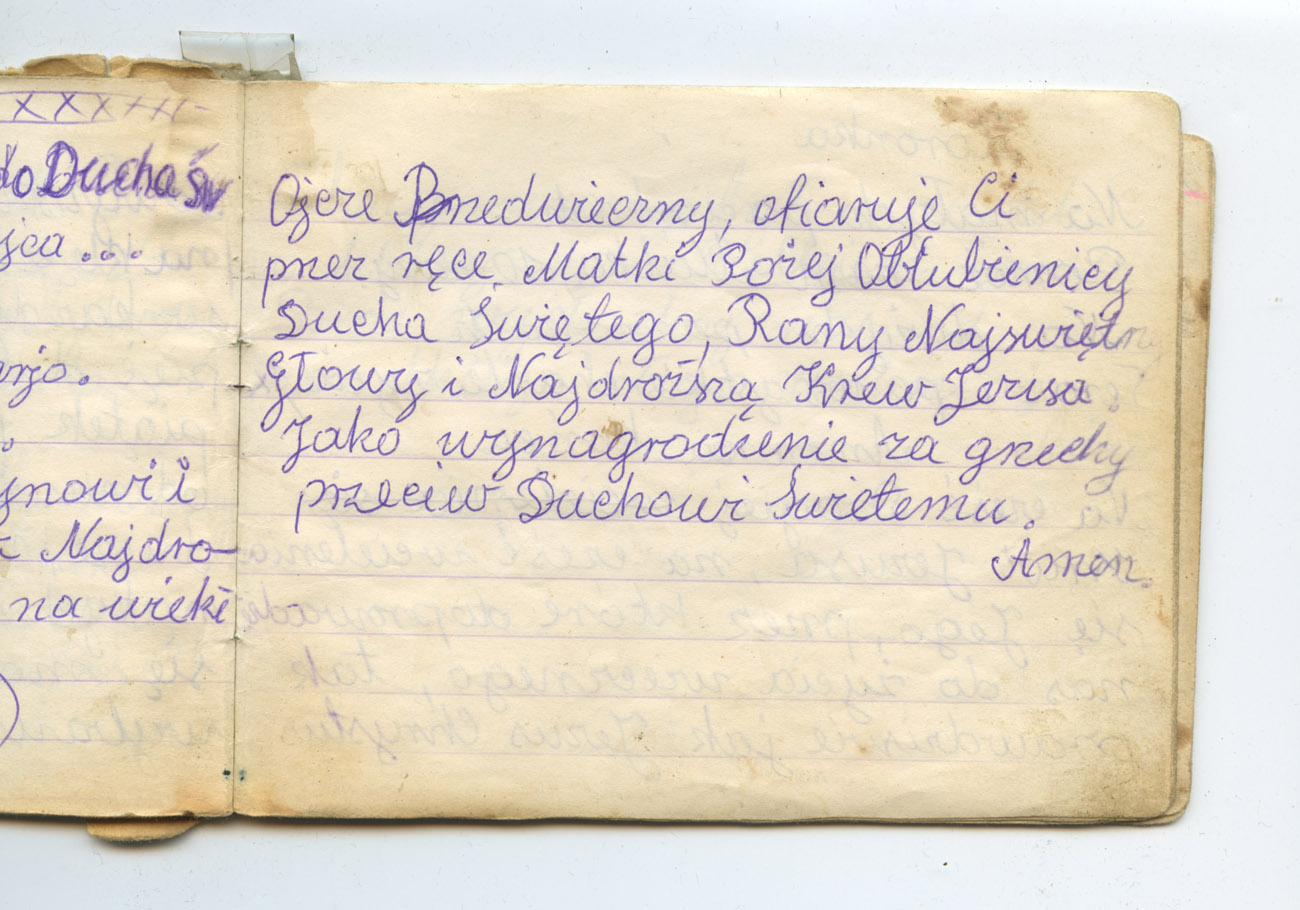 do Ducha Św
jca...
ynowi i
Najdro-
na wieki
Ojcze Przedwieczny, ofiaruję Ci
przez ręce Matki Bożej Oblubienicy
Ducha Świętego, Rany Najświęt
Głowy i Najdroższą Krew Jezusa.
Jako wynagrodzenie za grzechy
przeciw Duchowi Świetemu.
Amen.